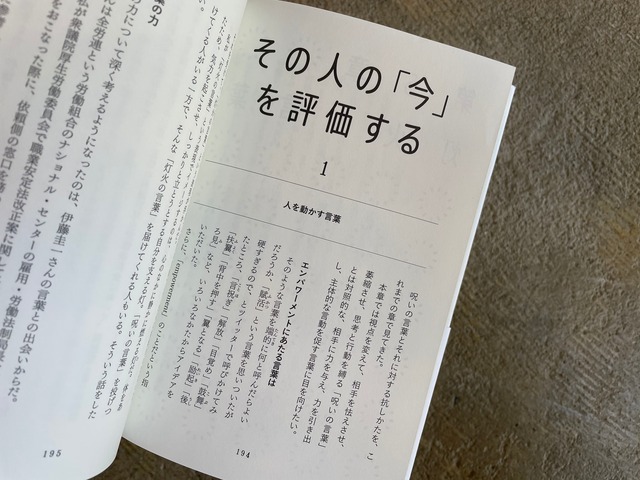 その人の「今」
を評価する
1
人を動かす言葉
呪いの言葉とそれに対する抗しかたを、こ
れまでの章で見てきた。
本章では視点を変えて、相手を怯えさせ、
萎縮させ、思考と行動を縛る「呪いの言葉」
とは対照的な、相手に力を与え、力を引き出
し、主体的な言動を促す言葉に目を向けたい。
エンパワーメントにあたる言葉は
そのような言葉を端的に何と呼んだらよい
だろうか、「賦活」という言葉を思いついたが
硬すぎるので、とツイッターで呼びかけてみ
たところ、「言祝ぎ」「解放」「目覚め」「鼓舞」
「扶翼」「背中を押す」「翼となる」「励起」「後
ろ見」など、いろいろなかたからアイデアを
いただいた。
さらに、「empowerment」のことだという指
194
けてくる人がいる一方で、そんな「灯火の言葉」を届けてくれる人もいる。そういう話をした
い。
葉の力
力について深く考えるようになったのは、伊藤圭一さんの言葉との出会いからだ。
氏は全労連という労働組合のナショナル・センターの雇用・労働法制局長
私が衆議院厚生労働委員会で職業安定法改正案に関して
をおこなった際に、依頼側の窓口を
195